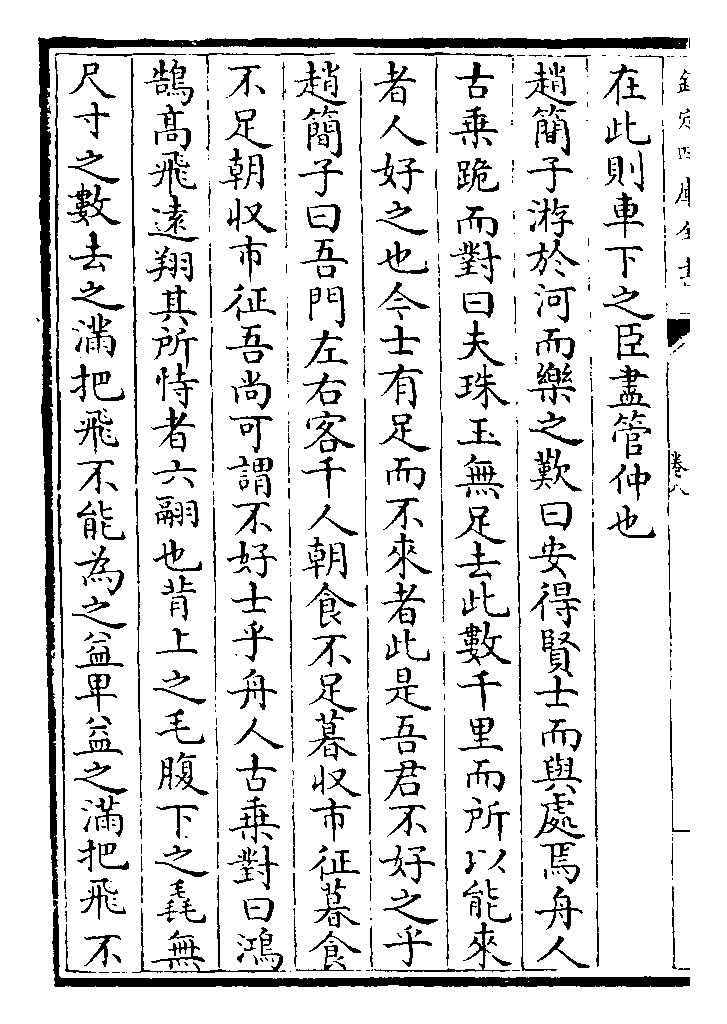 欽定四庫全書
卷八
在此則車下之臣盡管仲也
趙簡子游於河而樂之歎曰安得賢士而與處焉舟人
古乗跪而對曰夫珠玉無足去此數千里而所以能來
者人好之也今士有足而不來者此是吾君不好之乎
趙簡子曰吾門左右客千人朝食不足暮収市征暮食
不足朝収市征吾尚可謂不好士乎舟人古乗對曰鴻
鵠高飛遠翔其所恃者六翮也背上之毛腹下之毳無
尺寸之數去之滿把飛不能為之益卑益之滿把飛不